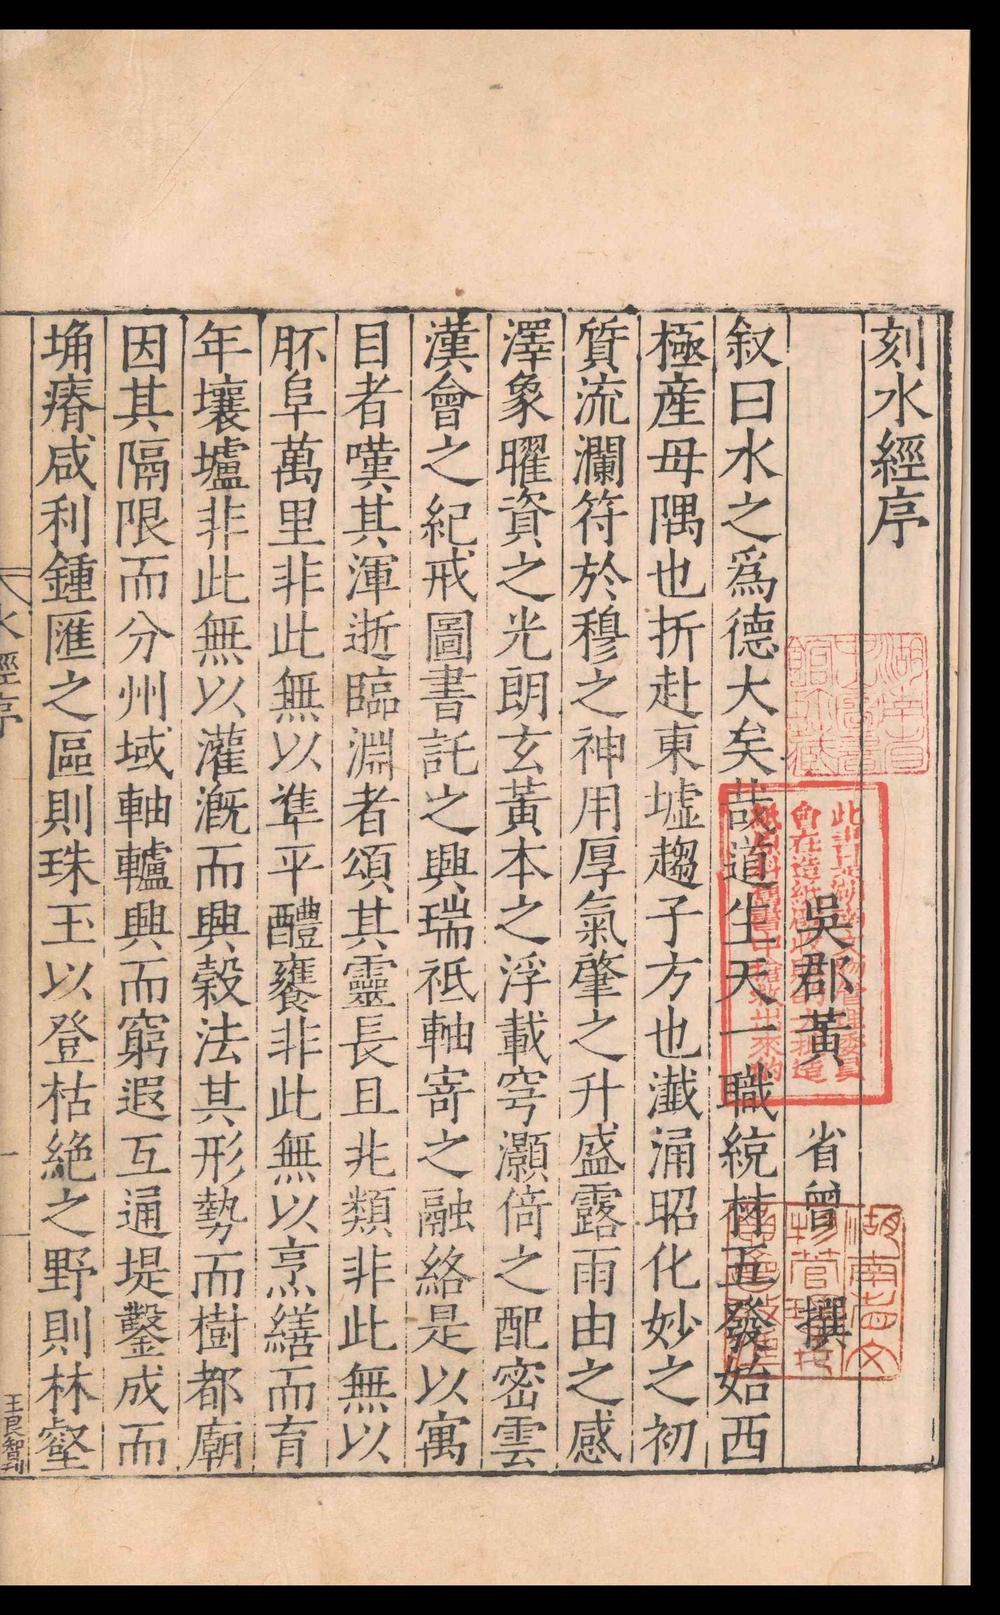 刻水經序
吳郡黃省曾撰
叙曰水之爲德大矣哉道生天一職統材五發始西
極產母隅也折赴東墟趨子方也瀸涌昭化妙之初
質流瀾符於穆之神用厚氣肇之升盛露雨由之感
澤象曜資之光朗玄黃本之浮載穹灝倚之配密雲
漢會之紀戒圖書託之興瑞祇軸寄之融絡是以寓
目者嘆其渾逝臨淵者頌其靈長且兆類非此無以
胚阜萬里非此無以準平醴饔非此無以烹繕而育
年壤壚非此無以灌溉而興穀法其形勢而樹都廟
因其隔限而分州域軸轤興而窮遐互通堤鑿成而
埆瘠咸利鍾匯之區則珠玉以登枯絶之野則林壑
水經序
一
王良智刊
湖南省
此書是湖南文物管理委員
會在造紙廠收購的
紙原料舊書中搶救出來的
湖南省文
物管理